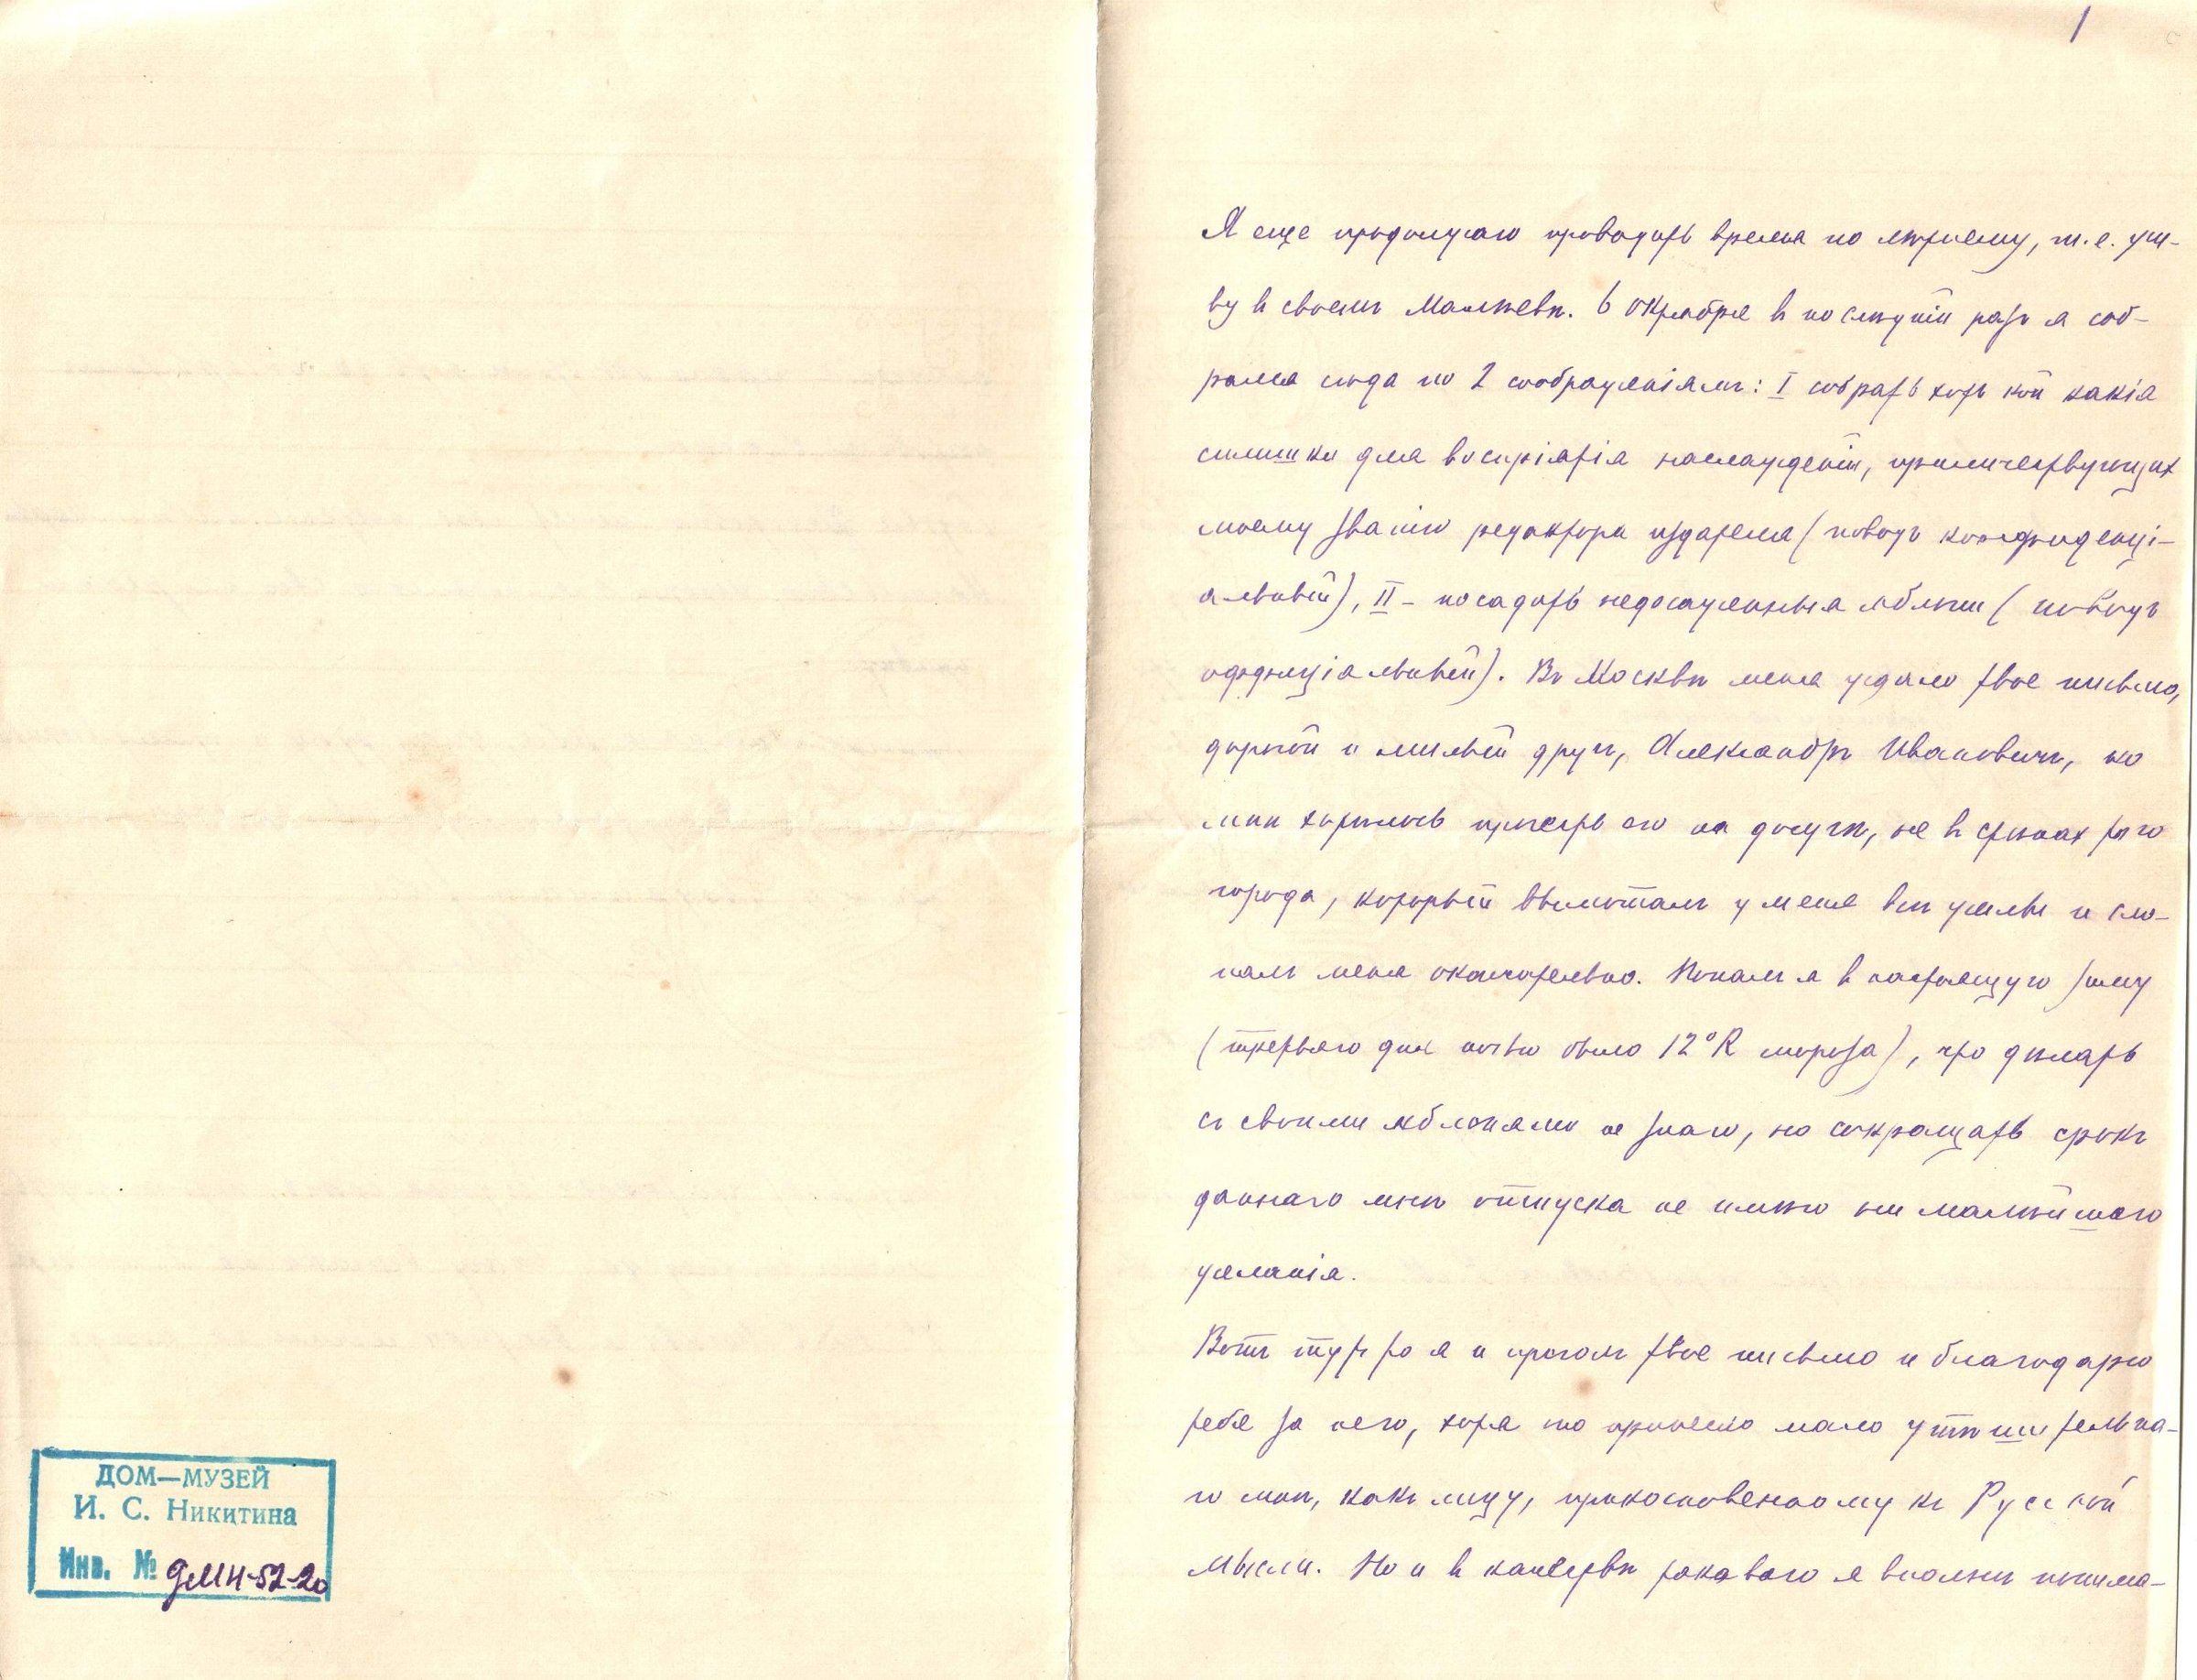 1
Я еще продолжаю проводить время по лѣтнему, т.е. жи-
ву в своемъ Малѣевѣ. 6 октября в послѣднiй разъ я соб-
рался сюда по 2 соображенiямъ: I собрать хоть кой какiя
силишки для воспрiятiя наслажденiй, приличествующих
моему званiю редактора издателя (поводъ конфиденцi-
альный), II – посадить недосаженныя яблони (поводъ
оффицiальный). Въ Москвѣ меня ждало твое письмо,
дорогой и милый другъ, Александръ Ивановичъ, но
мнѣ хотѣлось прочесть его на досугѣ, не в стѣнах того
города, который вымоталъ у меня всѣ жилы и сло-
палъ меня окончательно. Попалъ я в настоящую зиму
(третьяго дня ночью было 12°R мороза), что дѣлать
съ своими яблонями не знаю, но сокращать срокъ
даннаго мнѣ отпуска не имѣю ни малѣйшаго
желанiя.
Вотъ тутъ то я и прочолъ твое письмо и благодарю
тебя за него, хотя то принесло мало утѣшительна-
го мнѣ, какъ лицу, прикосновенному къ Русской
Мысли. Но и в качествѣ таковаго я вполнѣ понима-
ДОМ—МУЗЕЙ
И. С. Никитина
Инв. № ДМН-52-20